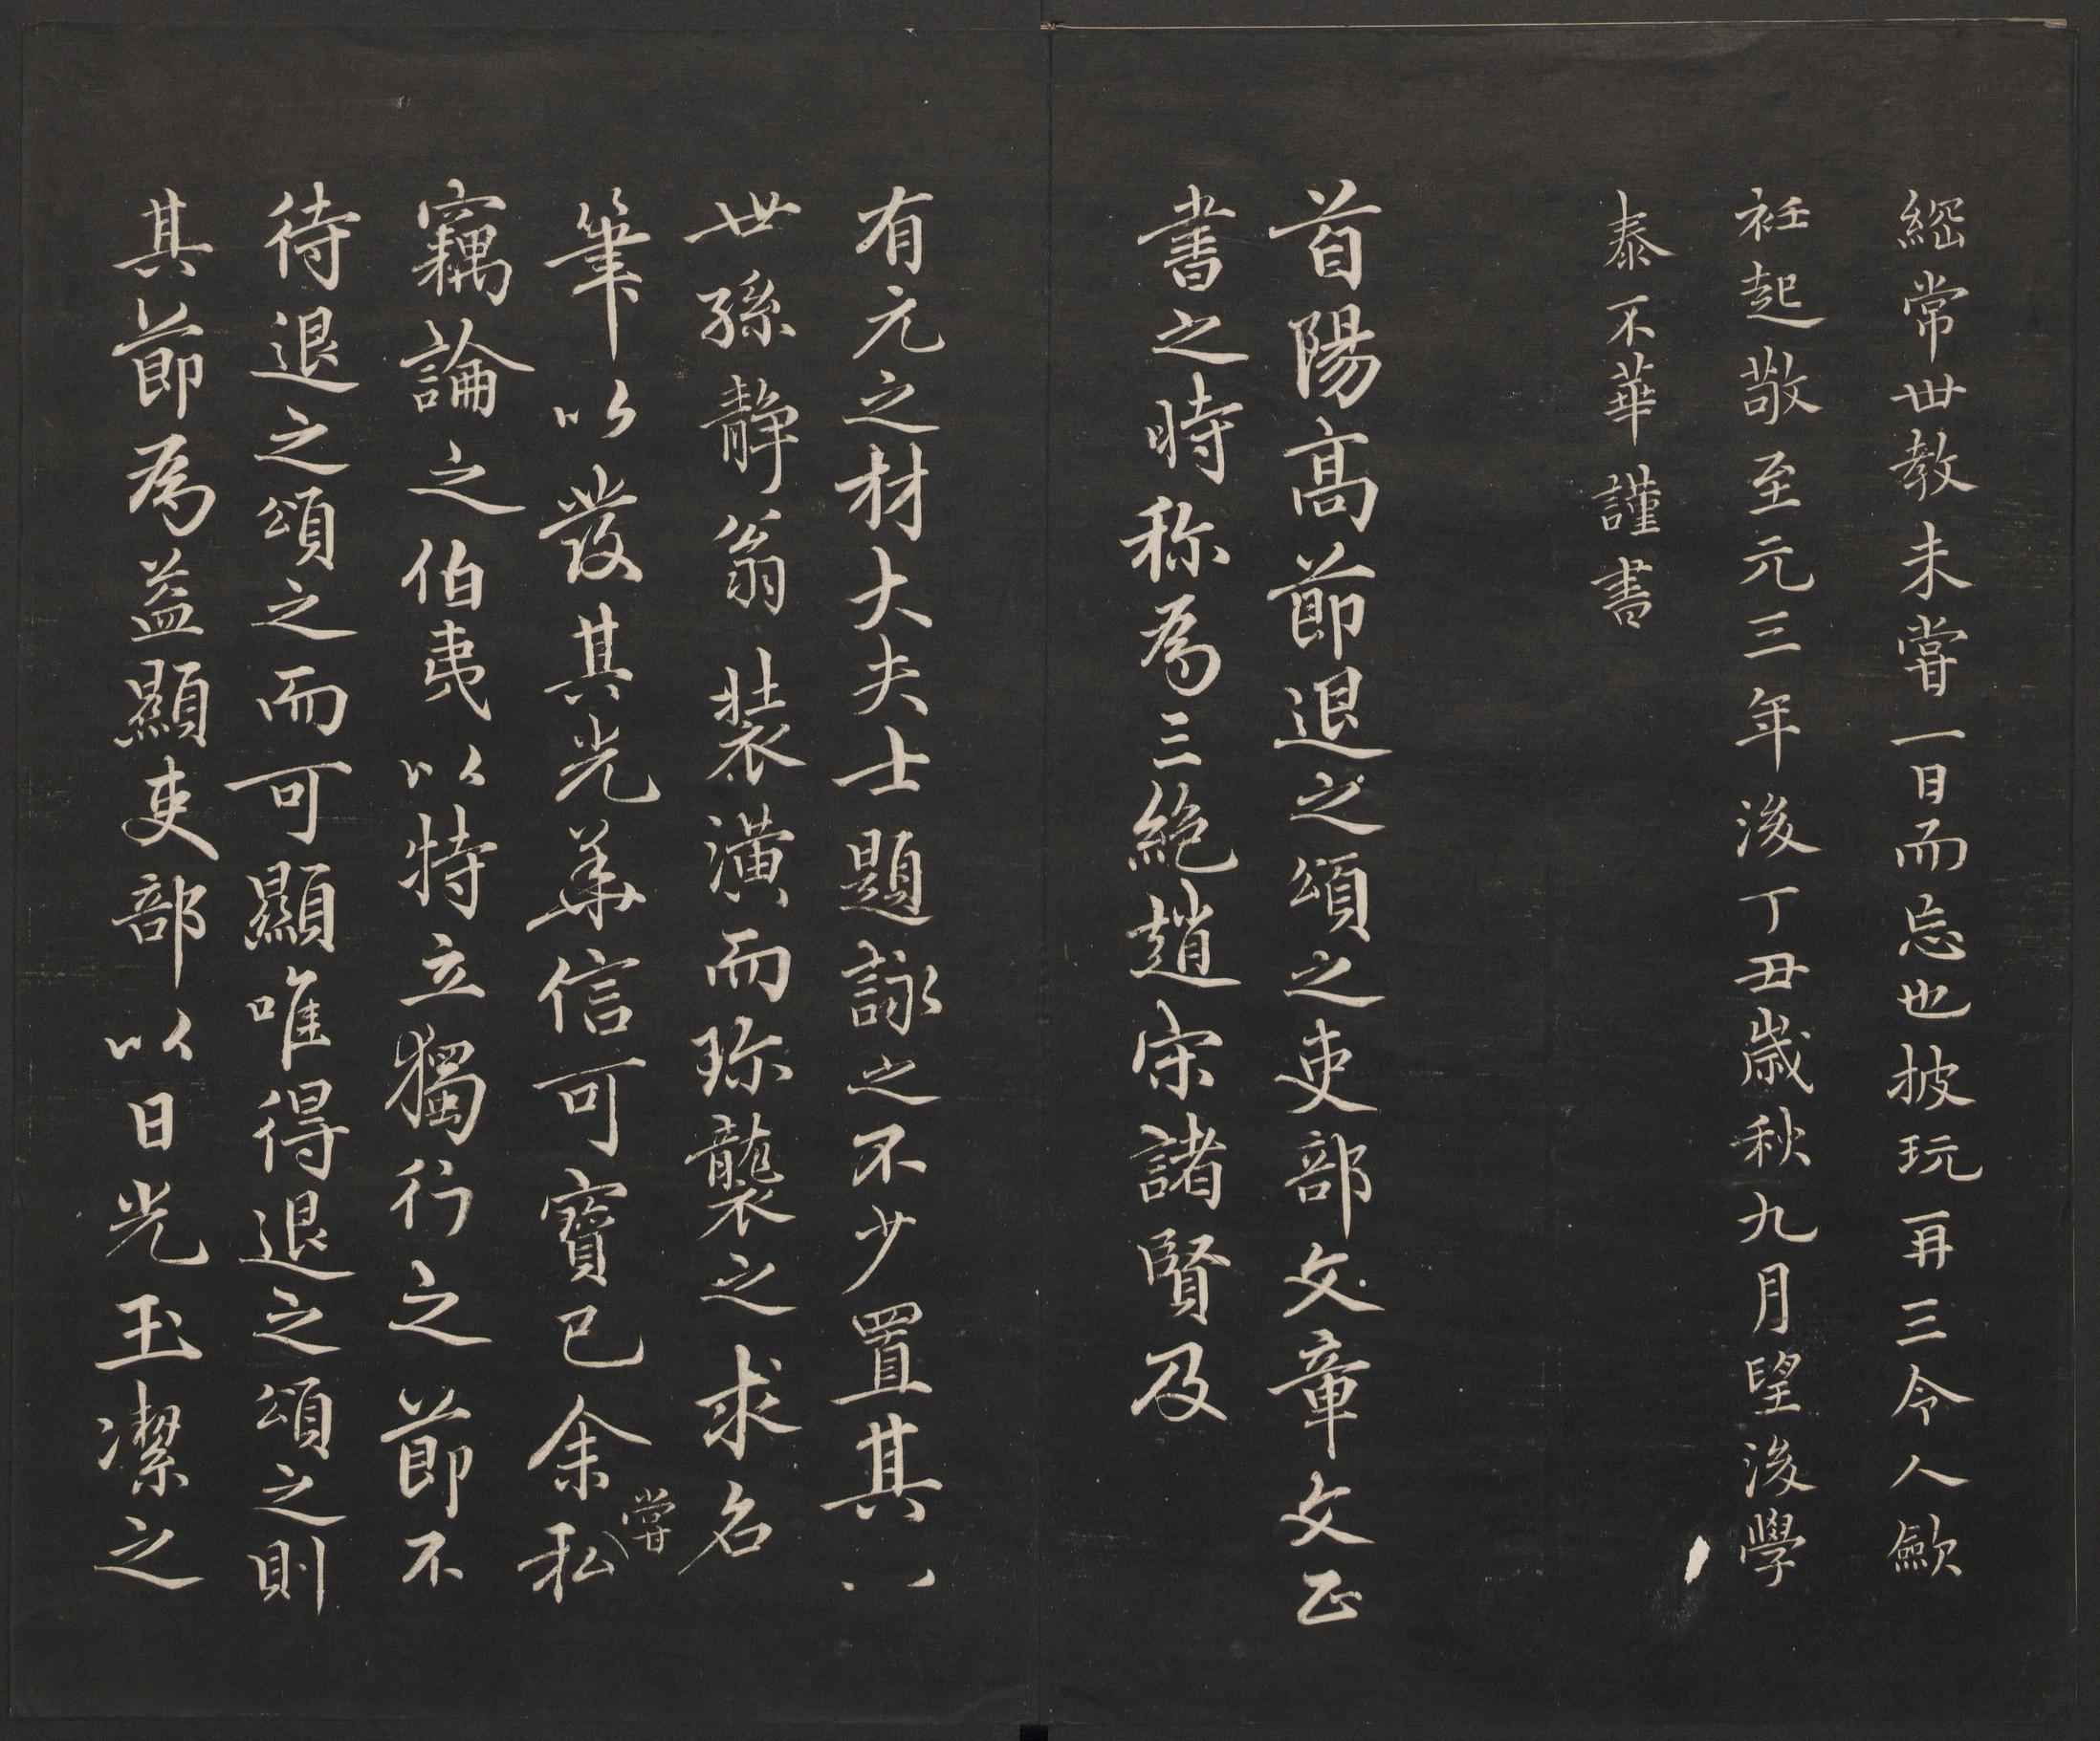 經常世教未嘗一日而忘也披玩再三令人斂
衽起敬至元三年後丁丑歲秋九月望後學
泰不華謹書
首陽高節退之頌之吏部文章文正
書之時稱為三絕趙宋諸賢及
有元之材大夫士題詠之不少置其八
世孫靜翁裝潢而珎襲之求名
筆以發其光華信可寶已余嘗私
竊論之伯夷以特立獨行之節不
待退之頌之而可顯唯得退之頌之則
其節為益顯吏部以日光玉潔之